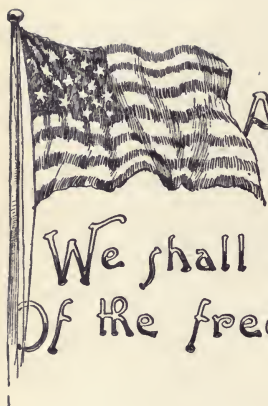 A
We shall
Of the free